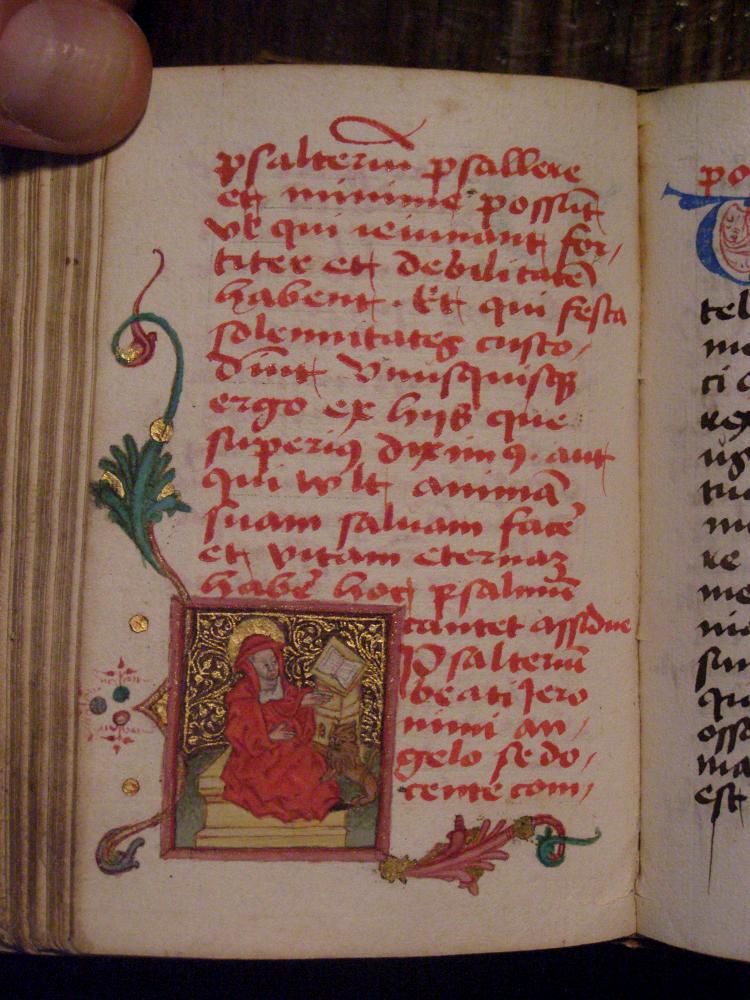 psalteriū psallere
et minime possūt
vl qui ieiunant for/
titer et debilitatē
habent. Et qui festa
solennitates custo/
diūt Vnusquisq3
ergo ex hijs que
superi9 dixim9. aut
qui wlt animā
suam saluam facē
et vitam eternaz
habē hoc psalmū
cantet assidue
Psalteriū
beati Jero
nimi an/
gelo se do/
cente com/
po
tel
me
ti
re
me
sun
qu
osso
ma
est